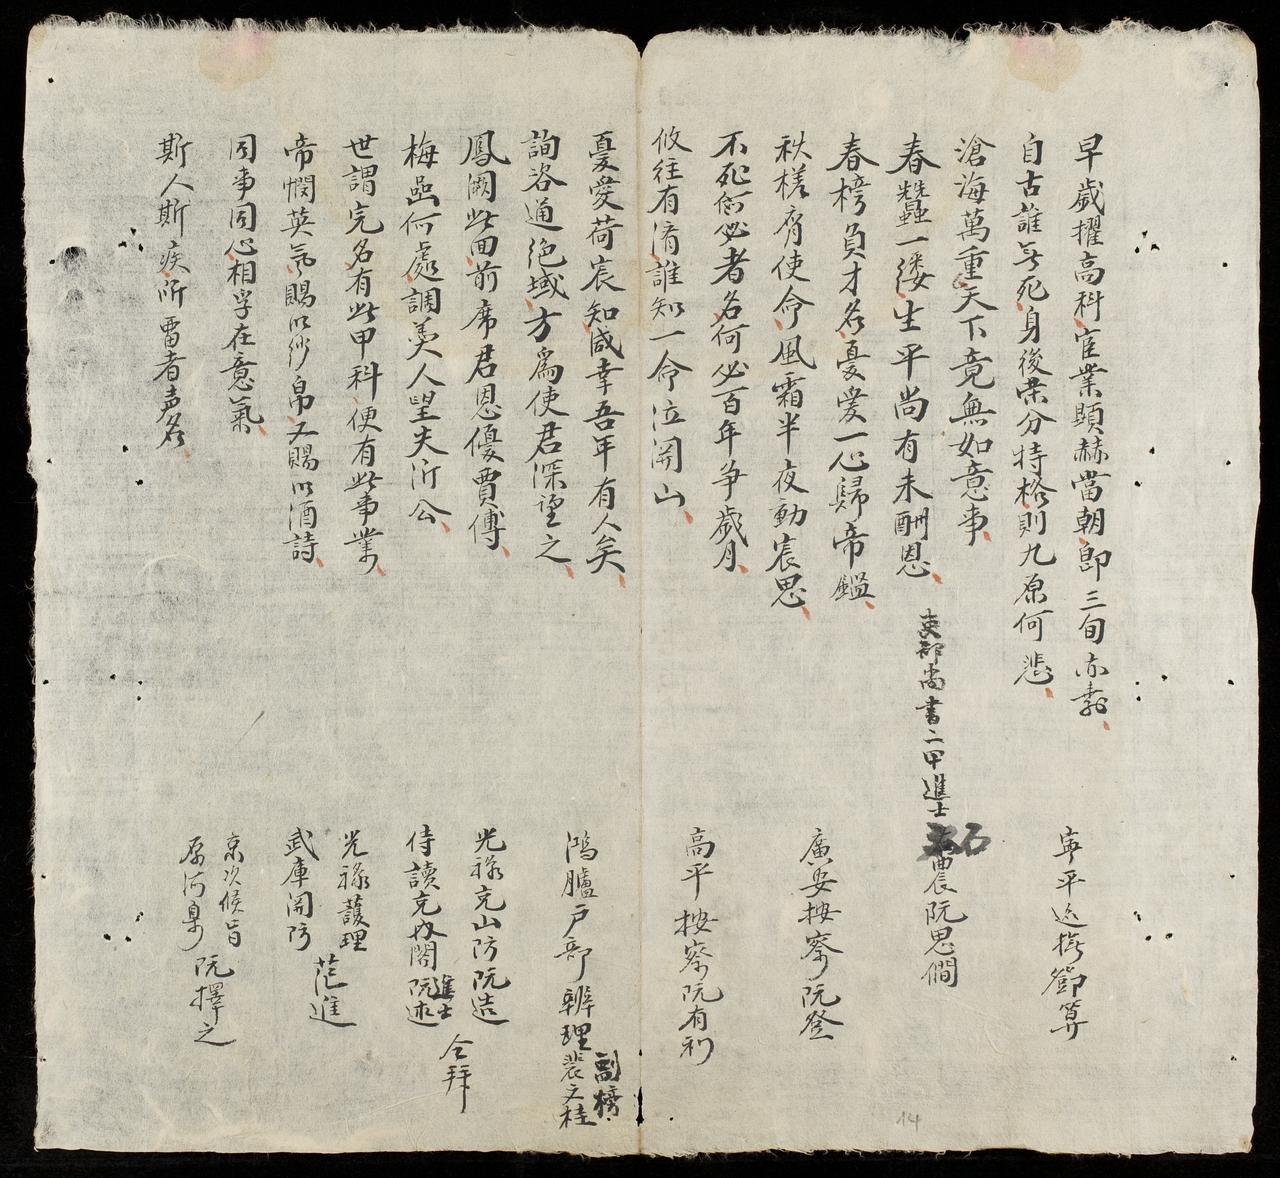 早歲擢高科宦業顯赫當朝即三旬亦壽
寧平巡撫鄧算
自古誰無死身後榮分特格則九原何悲
滄海萬重天下竟無如意事
春蠶一縷生平尚有未酬恩
吏部尚書二甲進士石農阮思僩
春榜負才名憂愛一心歸帝鑑
秋槎膺使命風霜半夜動宸思
廣安按察阮登
不死何必者名何必百年爭歲月
攸往有濟誰知一命泣關山
高平按察阮有利
憂愛荷宸知咸幸吾年有人矣
詢咨通絕域方為使君深望之
鴻臚戶部辦理裴文桂
副榜
鳳闕此回前席君恩優賈傅
梅嵒何處調羹人望失沂公
光祿充山防阮造
侍讀充內閣進士阮述
仝拜
世謂完名有此甲科便有此事業
帝憫英氣賜以紗帛又賜以酒詩
光祿護理
武庫關防
范進
同事同心相孚在意氣
斯人斯疾所留者聲名
京次候旨
原河臬
阮擇之
14